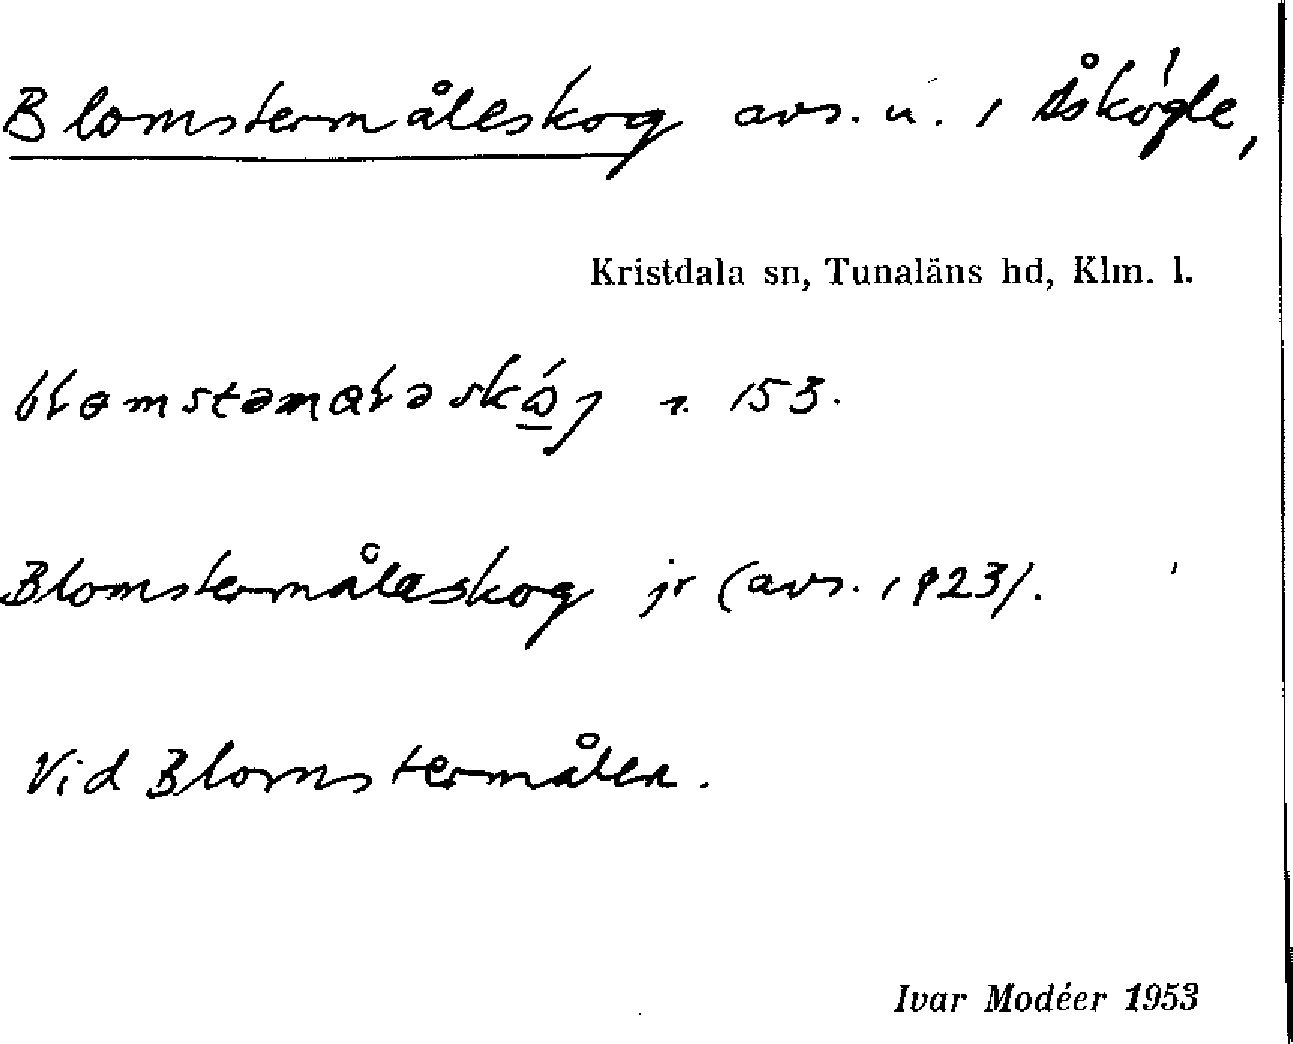 Blomstermåleskog avs. u. i Åskögle,
Kristdala sn, Tunaläns hd, Klm. l.
r. 153.
Blomstermålaskog jr (avs. 1923).
Vid Blomstermålen.
Ivar Modéer 1953